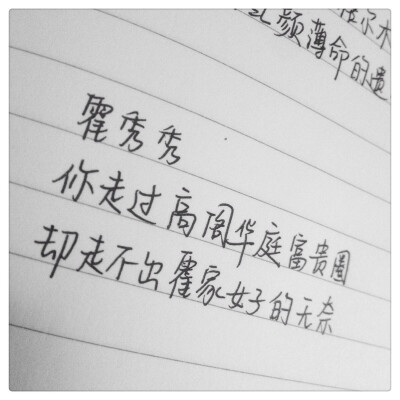 颜薄命的遗
霍秀秀
你走过高阁华庭富贵圈
却走不出霍家女子的无奈